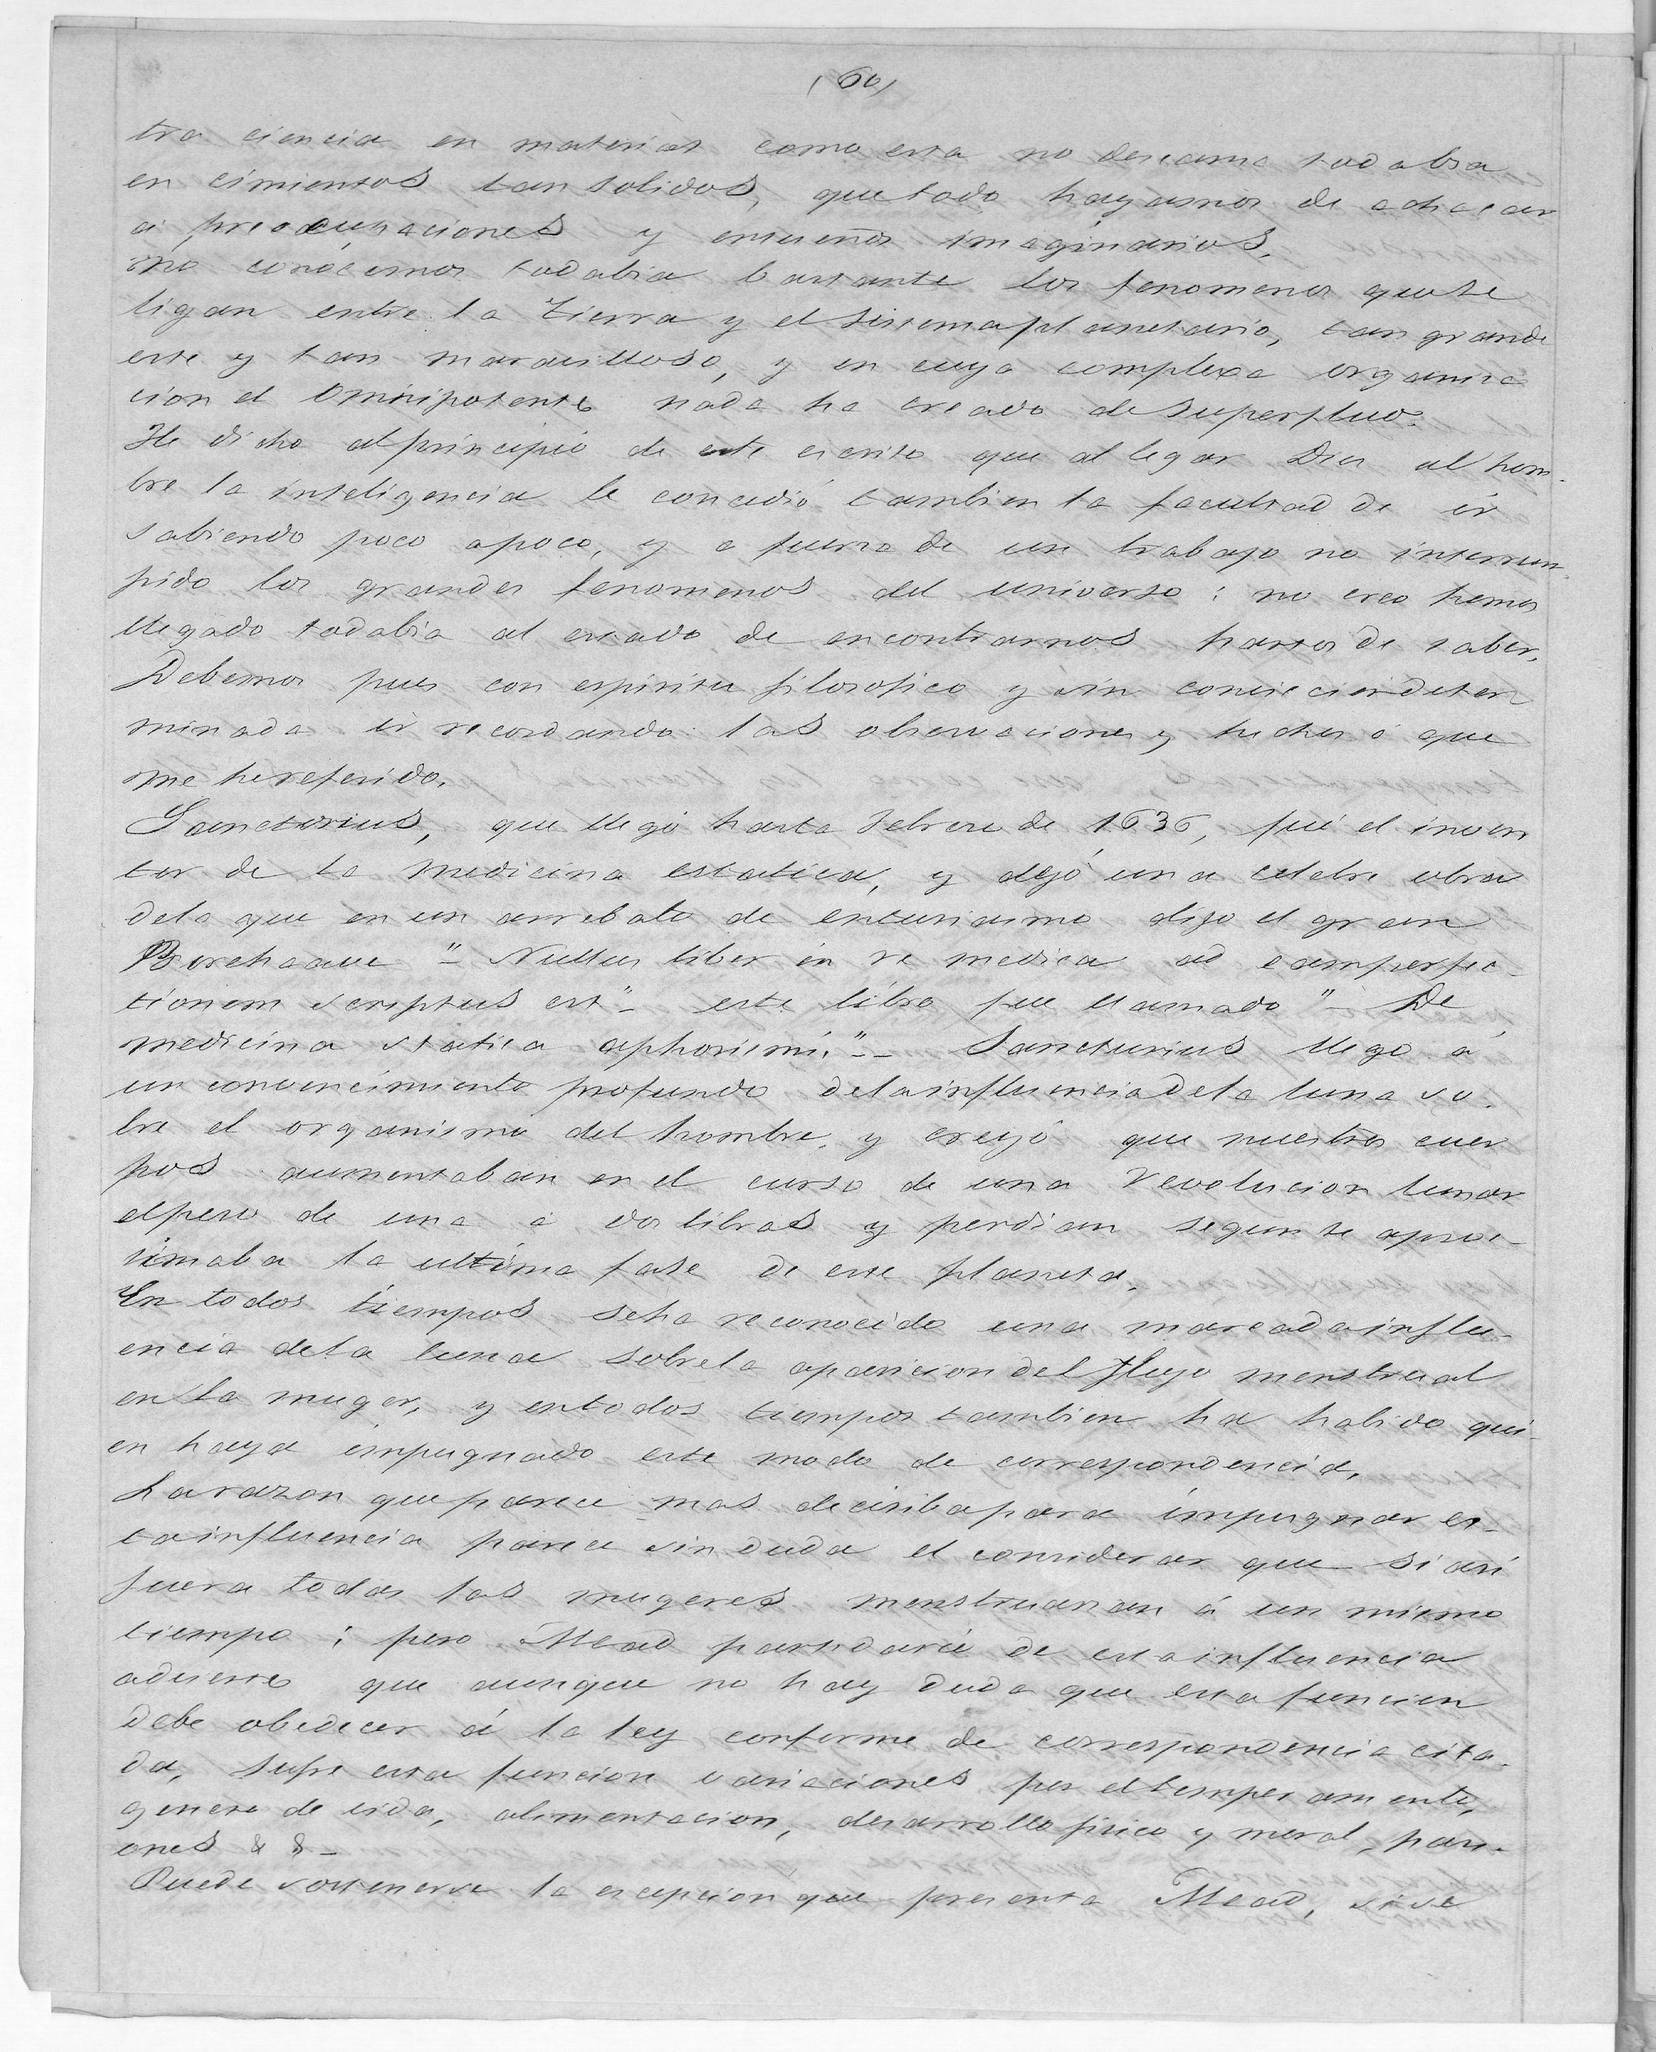 (60)
tra ciencia en materias como esta no descansa todabia
en cimientos tan solidos, que todo hayamos de achacar
á preocupaciones y ensueños imaginarios.
No conocemos todabia bastante los fenomenos que se
ligan entre la Tierra y el sistema planetario, tan grande
este y tan maravilloso, y en cuya complexa organiza
cion el Omnipotente nada ha creado de superfluo.
He dicho al principio de este escrito que al legar Dios al hom-
bre la inteligencia le concedió tambien la facultad de ir
sabiendo poco apoco, y a fuerza de un trabajo no interrum-
pido los grandes fenomenos del universo: no creo hemos
llegado todabia al estado de encontrarnos hartos de saber.
Debemos pues con espiritu filosofico y sin conviccion deter
minada ir recordando las observaciones y hechos á que
me he referido.
Sanctorius, que llegó hasta Febrero de 1636, fué el inven
tor de la medicina estatica, y dejó una celebre obra
dela que en un arrebato de entusiasmo dijo el gran
Boerehaave "- Nullus liber in re medica ad eamperfec-
tionem scriptus est"- este libro fue llamado "- De
medicina statica aphorismi."-- Sanctorius llego á
un convencimiento profundo delainfluenciadela luna so-
bre el organismo del hombre, y creyó que nuestros cuer
pos aumentaban en el curso de una revolucion lunar
elpeso de una á dos libras y perdian segun se aproc-
simaba la ultima fase de este planeta.
En todos tiempos seha reconocido una marcadainflu-
encia dela luna sobrela aparicion del flujo menstrual
en la muger, y entodos tiempos tambien ha habido qui-
en haya impugnado este modo de correspondencia.
La razon queparece mas decisibapara impugnar es-
tainfluencia parece sin duda el considerar que si asi
fuera todas las mugeres menstruarian á un mismo
tiempo; pero Mead partidario de estainfluencia
advierte que aunque no hay duda que esta funcion
debe obedecer á la ley conforme de correspondencia cita-
da, sufre esta funcion variaciones por eltemperamento,
genero de vida, alimentacion, desarrollo fisico y moral, pasi-
ones & & -
Puede sostenerse la escepcion que presenta Mead, si se